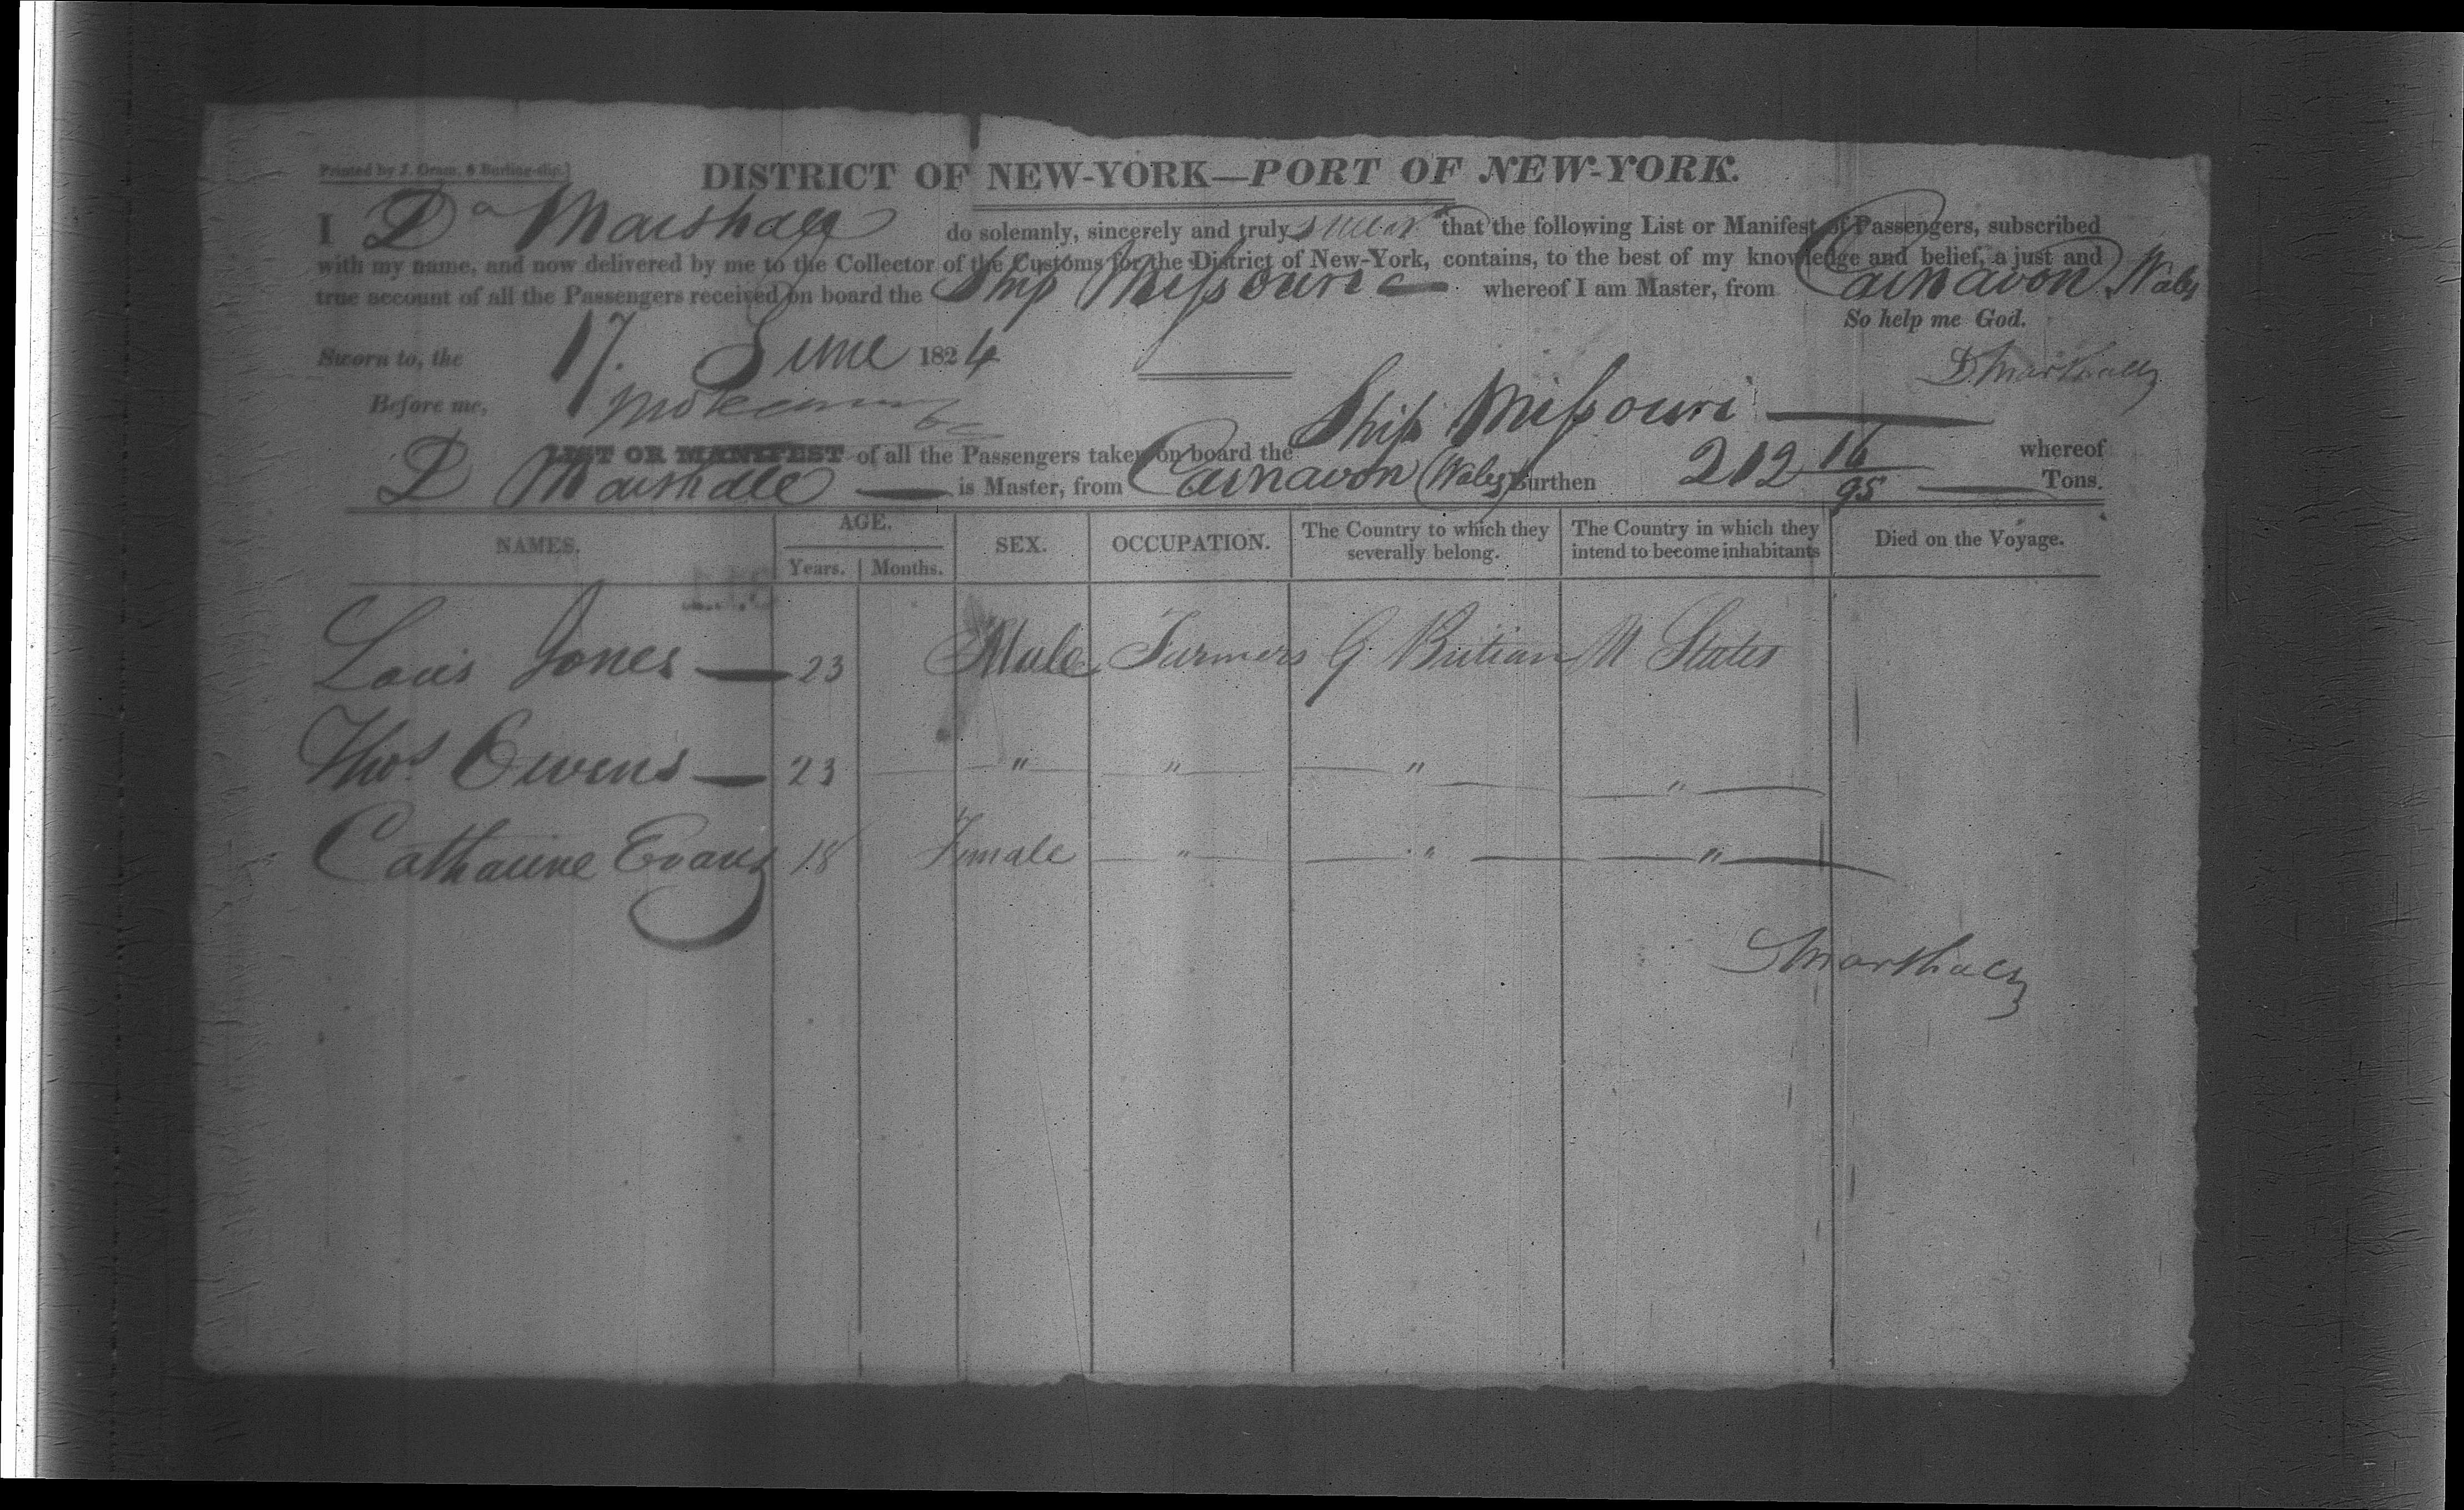 Printed by J. Oram, 8 Burling-slip.]
DISTRICT OF NEW-YORK—PORT OF NEW-YORK.
I D Marshall do solemnly, sincerely and truly swear that the following List or Manifest of Passengers, subscribed
with my name, and now delivered by me to the Collector of the Customs for the District of New-York, contains, to the best of my knowledge and belief, a just and
true account of all the Passengers received on board the Ship Missouri whereof I am Master, from Carnavon Wales
So help me God.
Sworn to, the 17. June 1824
D. Marshall
Before me,
LIST OR MANIFEST of all the Passengers taken on board the Ship Missouri whereof
D Marshall is Master, from Carnavon (Wales) Burthen 212 16/95 Tons.
NAMES. AGE. Years. Months. SEX. OCCUPATION. The Country to which they severally belong. The Country in which they intend to become inhabitants Died on the Voyage.
Louis Jones — 23 Male Farmers G. Britian U States
Thos Owens — 23 " " " "
Catharine Evans 18 Female " " "
D Marshall